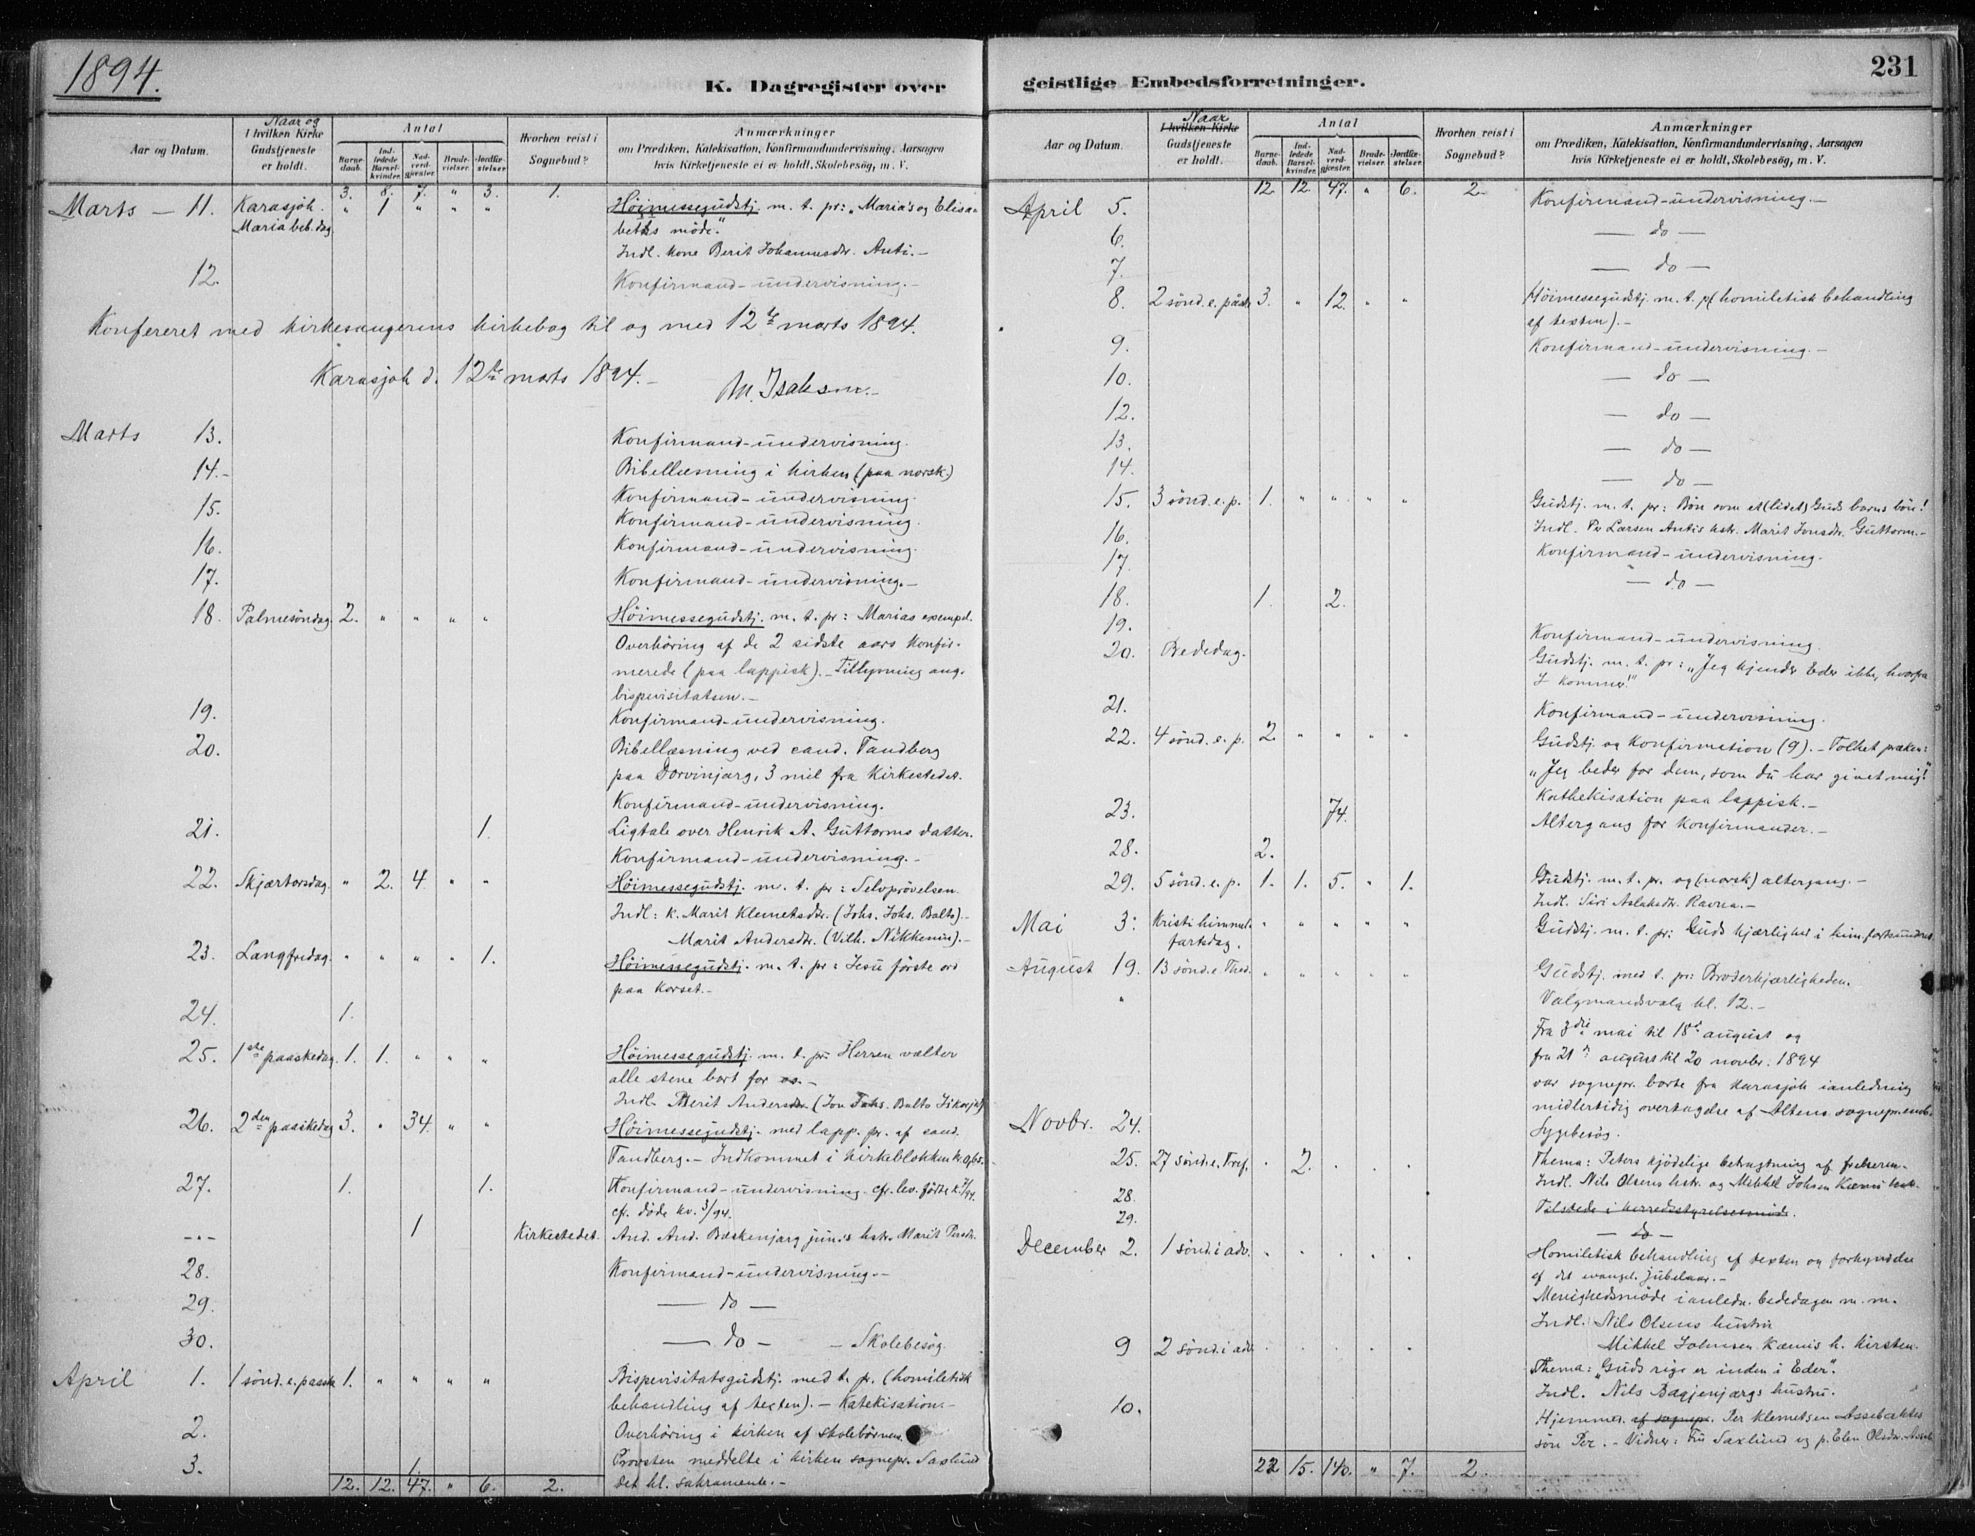 1894.
K. Dagregister over
Aar og Datum.
Naar og
I hvilken Kirke
Gudstjeneste
er holdt.
Antal
Barne-
daab.
Ind-
ledede
Barsel-
kvinder.
Nad-
verd-
gjæster.
Brude-
vielser.
Jordfæ-
stelser.
Hvorhen reist i
Sognebud?
Anmærkninger
om Prædiken, Katekisation, Konfirmandundervisning, Aarsagen
hvis Kirketjeneste ei er holdt, Skolebesøg, m. V.
3. 8. 7. " 3. 1.
Marts — 11. Karasjok. " 1 " " " Höimessegudstj. m. t. pr: „Maria's og Elisa-
Mariæ beb. dag. beths möde".
Indl. kone Berit Johannesdr. Anti. —
12. Konfirmand-undervisning. —
Konfereret med kirkesangerens kirkebog til og med 12te marts 1894.
Karasjok d. 12te marts 1894. —
M. Isaksen. —
Marts 13. Konfirmand-undervisning.
14. - Bibellæsning i kirken (paa norsk.)
15. Konfirmand-undervisning.
Konfirmand-undervisning.
16. Konfirmand-undervisning.
17. Konfirmand-undervisning. —
18. Palmesöndag. 2. " " " " Höimessegudstj. m. t. pr: Marias exempel.
Overhöring af de 2 sidste aars konfir-
merede (paa lappisk). — Tillysning ang.
bispevisitatsen. —
19. Konfirmand-undervisning.
20. Bibellæsning ved cand. Tandberg
paa Dorvinjarg, 3 mil fra Kirkestedet.
Konfirmand-undervisning.
21. 1. Ligtale over Henrik A. Guttorms datter.
Konfirmand-undervisning. —
22. Skjærtorsdag. " 2. 4. " " Höimessegudstj. m. t. pr: Selvprövelsen.
Indl: k. Marit Klemetsdr. (Johs. Johs. Balto). —
Marit Andersdr. (Vilh. Nikkenin). —
23. Langfredag. " " " " 1. Höimessegudstj. m. t. pr: Jesu förste ord
paa korset. —
24. 1.
25. 1ste paaskedag. 1. 1. " " " Höimessegudstj. m. t. pr: Herren vælter
alle stene bort for os. —
Indl. Berit Andersdr. (Jon Johs. Balto
26. 2den paaskedag 3. " 34. " " Höimessegudstj. med lapp. pr. af cand.
Tandberg. — Indkommet i kirkeblokken
27. 1. 1. Konfirmand-undervisning. cfr. lev. födte
cfr. döde kv. 3/94.
-.- 1 Kirkestedet. And. And. Bæskenjarg jun.s hstr. Marit Persdr.
28. Konfirmand-undervisning. —
29. — do —
30. — do — — Skolebesög.
April 1. 1 sönd. e. paaske 1. " " " " Bispevisitatsgudstj. med t. pr. (homiletisk
behandling af texten). — Katekisation. —
2. Overhöring i kirken af skolebörnene.
3. 1. Provsten meddelte i kirken sognepr. Saxlund
12. 12. 47. " 6. 2. det hl. sakramente. —
geistlige Embedsforretninger.
231
Aar og Datum.
Naar
I hvilken Kirke
Gudstjeneste
er holdt.
Antal
Barne-
daab.
Ind-
ledede
Barsel-
kvinder.
Nad-
verd-
gjæster.
Brude-
vielser.
Jordfæ-
stelser.
Hvorhen reist i
Sognebud?
Anmærkninger
om Prædiken, Katekisation, Konfirmandundervisning, Aarsagen
hvis Kirketjeneste ei er holdt, Skolebesøg, m. V.
12. 12. 47. " 6. 2.
April 5. Konfirmand-undervisning. —
6. — do —
7. — do —
8. 2 sönd. e. påske 3. " 12. " " Höimessegudstj. m. t. pr (homiletisk behandling
af texten). —
9. Konfirmand-undervisning. —
10. — do —
12. — do —
13. — do —
14. — do —
15. 3 sönd. e. p. 1. " " " " Gudstj. m. t. pr: Bön som et (lidet) Guds barns bön!
Indl. Per Larsen Antis hstr. Marit Jonsdr. Guttorm. —
16. Konfirmand-undervisning.
17. — do —
18. 1. 2.
19. Konfirmand-undervisning.
20. Bededag. Gudstj. m. t. pr: „Jeg kjender Eder ikke, hvorfra
I kommer".
21. Konfirmand-undervisning.
22. 4 sönd. e. p. 2 " " " " Gudstj. og Konfirmation (9). — Tolket præken:
„Jeg beder for dem, som du har givet mig!"
Kathekisation paa lappisk. —
23. 74. Altergang for konfirmander. —
28. 2.
29. 5 sönd. e. p. 1. 1. 5. " 1. Gudstj. m. t. pr. og (norsk) altergang. —
Indl. Siri Aslaksdr. Ravna. —
Mai 3. Kristi himmel- " " " " " Gudstj. m. t. pr: Guds kjærlighed i
fartsdag.
August 19. 13 sönd. e. Tref. " " " " " Gudstj. med t. pr: Broderkjærligheden.
" Valgmandsvalg kl. 12. —
Fra 3die mai til 18de august og
fra 21de august til 20 novbr. 1894
var sognepr. borte fra Karasjok i anledning
midlertidig overtagelse af Altens sognepr.emb.
Novbr. 24. Sygebesög.
25. 27 sönd. e. Tref. . 2. . . . Thema: Peters kjödelige betragtning af frelseren.
Indl. Nils Olsens hstr. og Mikkel Johsen Kæmis hstr.
28. Tilstede i herredsstyrelsesmöde.
29. — do —
December 2. 1 sönd. i adv. . . . . . Homiletisk behandling af texten og forkyndelse
af det evangel. Jubelaar. —
Menighedsmöde i anledn. bededagen m. m.
Indl. Nils Olsens hustru
Mikkel Johnsen Kæmis h. Kirsten.
9 2 sönd. i adv. . . . . . Thema: „Guds rige er inden i Eder".
Indl. Nils Bagjenjargs hustru.
10. Hjemmed. af sognepr. Per Klemetsen Assebaktes
sön Per. — Vidner: Fru Saxlund og p. Elen Olsdr.
22 15. 140. " 7. 2.